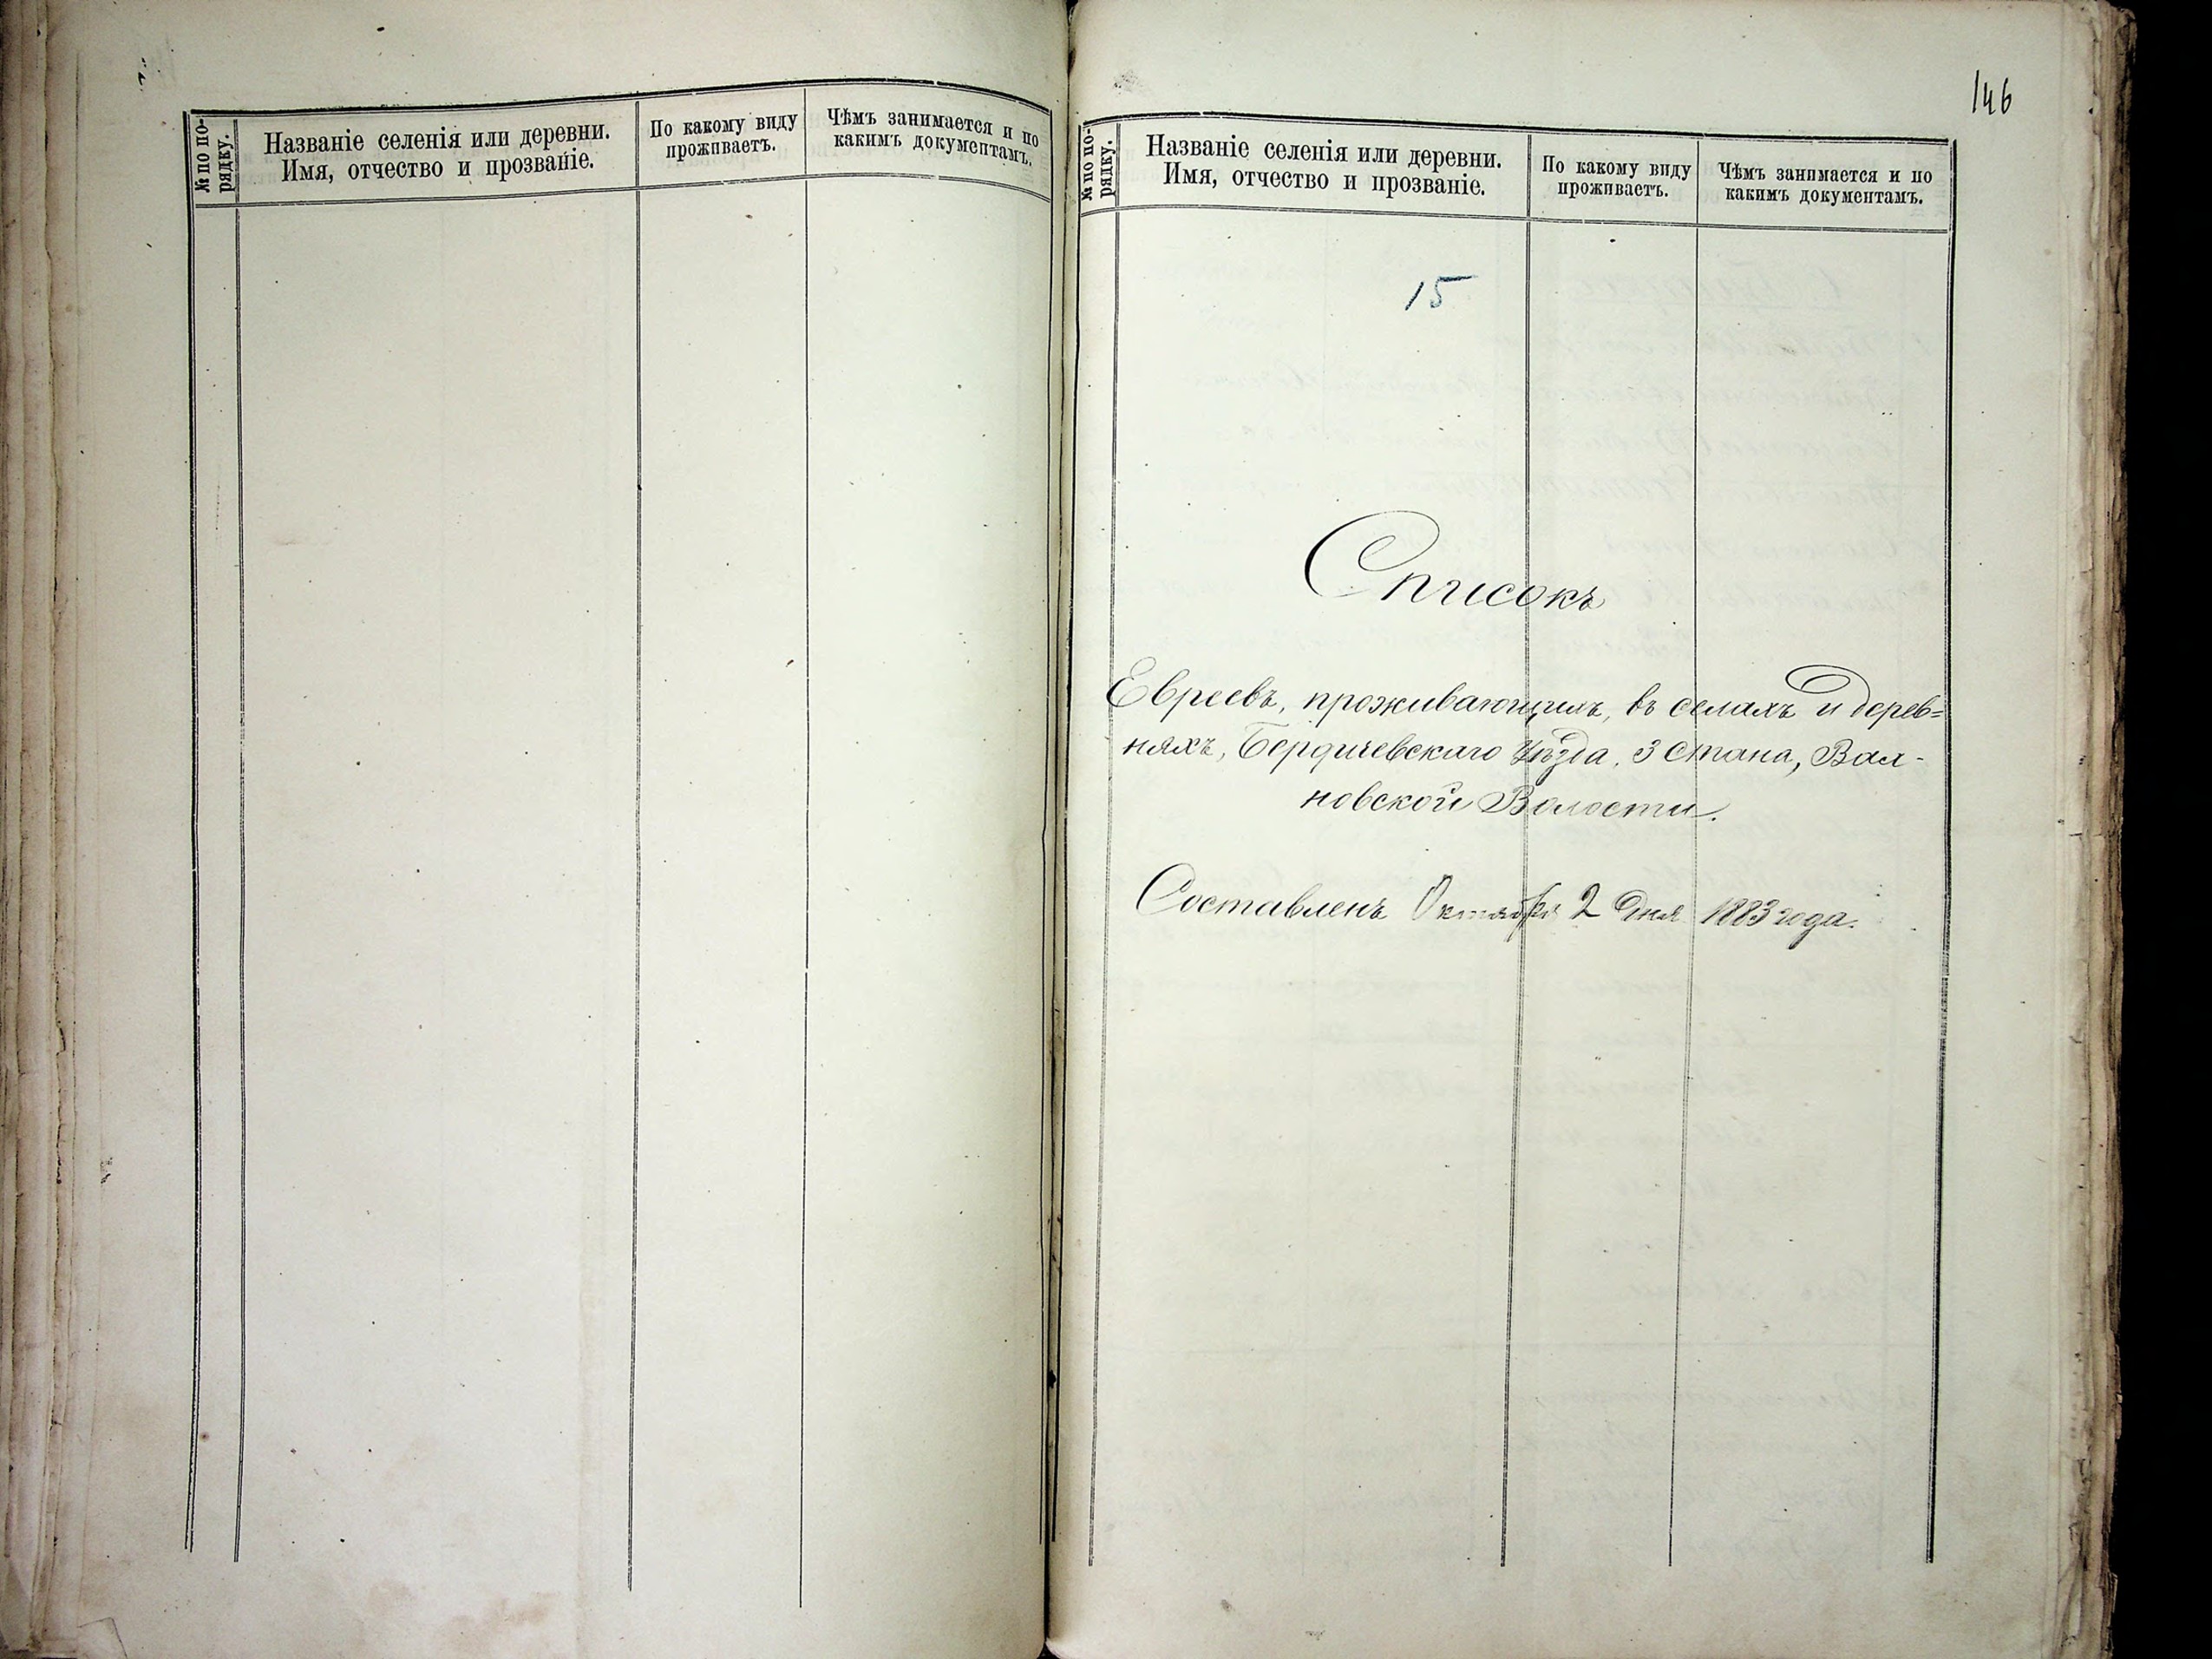 № по по-
рядку.
Названіе селенія или деревни.
Имя, отчество и прозваніе.
По какому виду
проживаетъ.
Чѣмъ занимается и по
какимъ документамъ.
146
№ по по-
рядку.
Названіе селенія или деревни.
Имя, отчество и прозваніе.
По какому виду
проживаетъ.
Чѣмъ занимается и по
какимъ документамъ.
15
Списокъ
Евреевъ, проживающихъ, въ селахъ и дерев=
няхъ, Бердичевскаго Уѣзда, 3 Стана, Вах-
новской Волости.
Составленъ Октября 2 дня 1883 года.